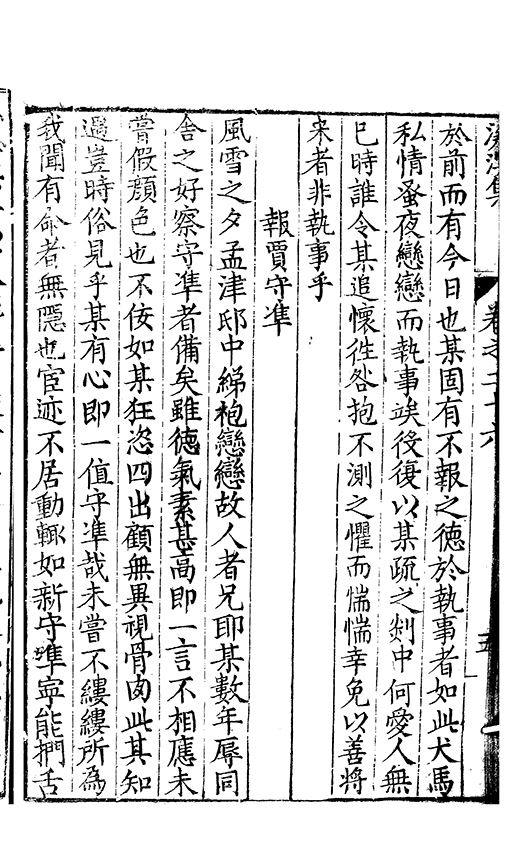 集
卷之二十六
五
於前而有今日也某固有不報之德於執事者如此犬馬
私情蚤夜戀戀而執事竢役復以某疏之剡中何愛人無
已時誰令某追懷徃咎抱不測之懼而惴惴幸免以善將
來者非執事乎
報賈守準
風雪之夕孟津邸中綈袍戀戀故人者兄耶某數年辱同
舍之好察守準者備矣雖德氣素甚高即一言不相應未
嘗假顏色也不佞如某狂恣四出顧無異視骨肉此其知
遇豈時俗見乎某有心即一值守準哉未嘗不縷縷所為
我聞有命者無隱也宦迹不居動輒如新守準寧能捫舌